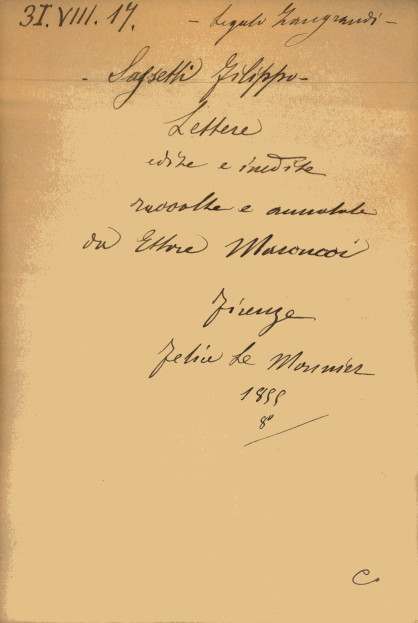 31.VIII.17. - Legato Zangrandi -
- Sassetti Filippo -
Lettere
edite e inedite
raccolte e annotate
da Ettore Marcucci
Firenze
Felice Le Monnier
1855
8º
C